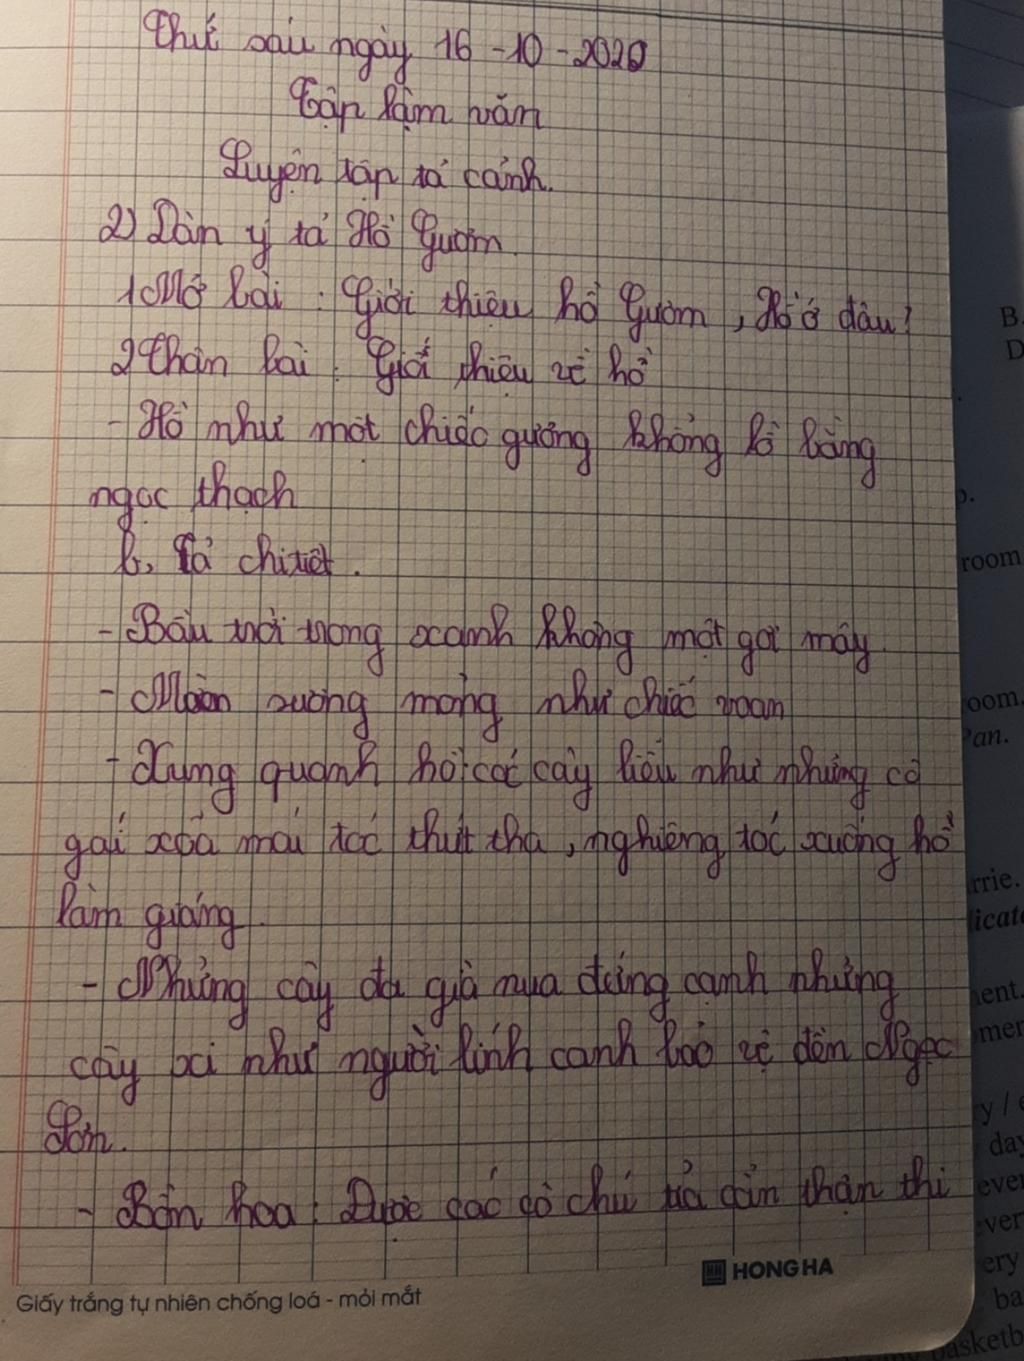 Thứ sáu ngày 16-10-2020
Tập làm văn
Luyện tập tả cảnh.
2) Dàn ý tả Hồ Gươm.
1 Mở bài : Giới thiệu hồ Gươm, Hồ ở đâu?
2 Thân bài : Giới thiệu về hồ
- Hồ như một chiếc gương khổng lồ bằng
ngọc thạch
b, Tả chi tiết.
- Bầu trời trong xanh không một gợi mây
- Màn sương mỏng như chiếc voan
- Xung quanh hồ: các cây liễu như những cô
gái xõa mái tóc thướt tha, nghiêng tóc xuống hồ
làm gương.
- Những cây đa già nua đứng cạnh những
cây xi như người lính canh bảo vệ đền Ngọc
Sơn.
- Bồn hoa : Được các cô chú tỉa cẩn thận thì
HONG HA
Giấy trắng tự nhiên chống loá - mỏi mắt
B.
D
room
oom.
Pan.
rrie.
licate
ent.
mer
y / e
day
ever
ver
ery
ba
basketb